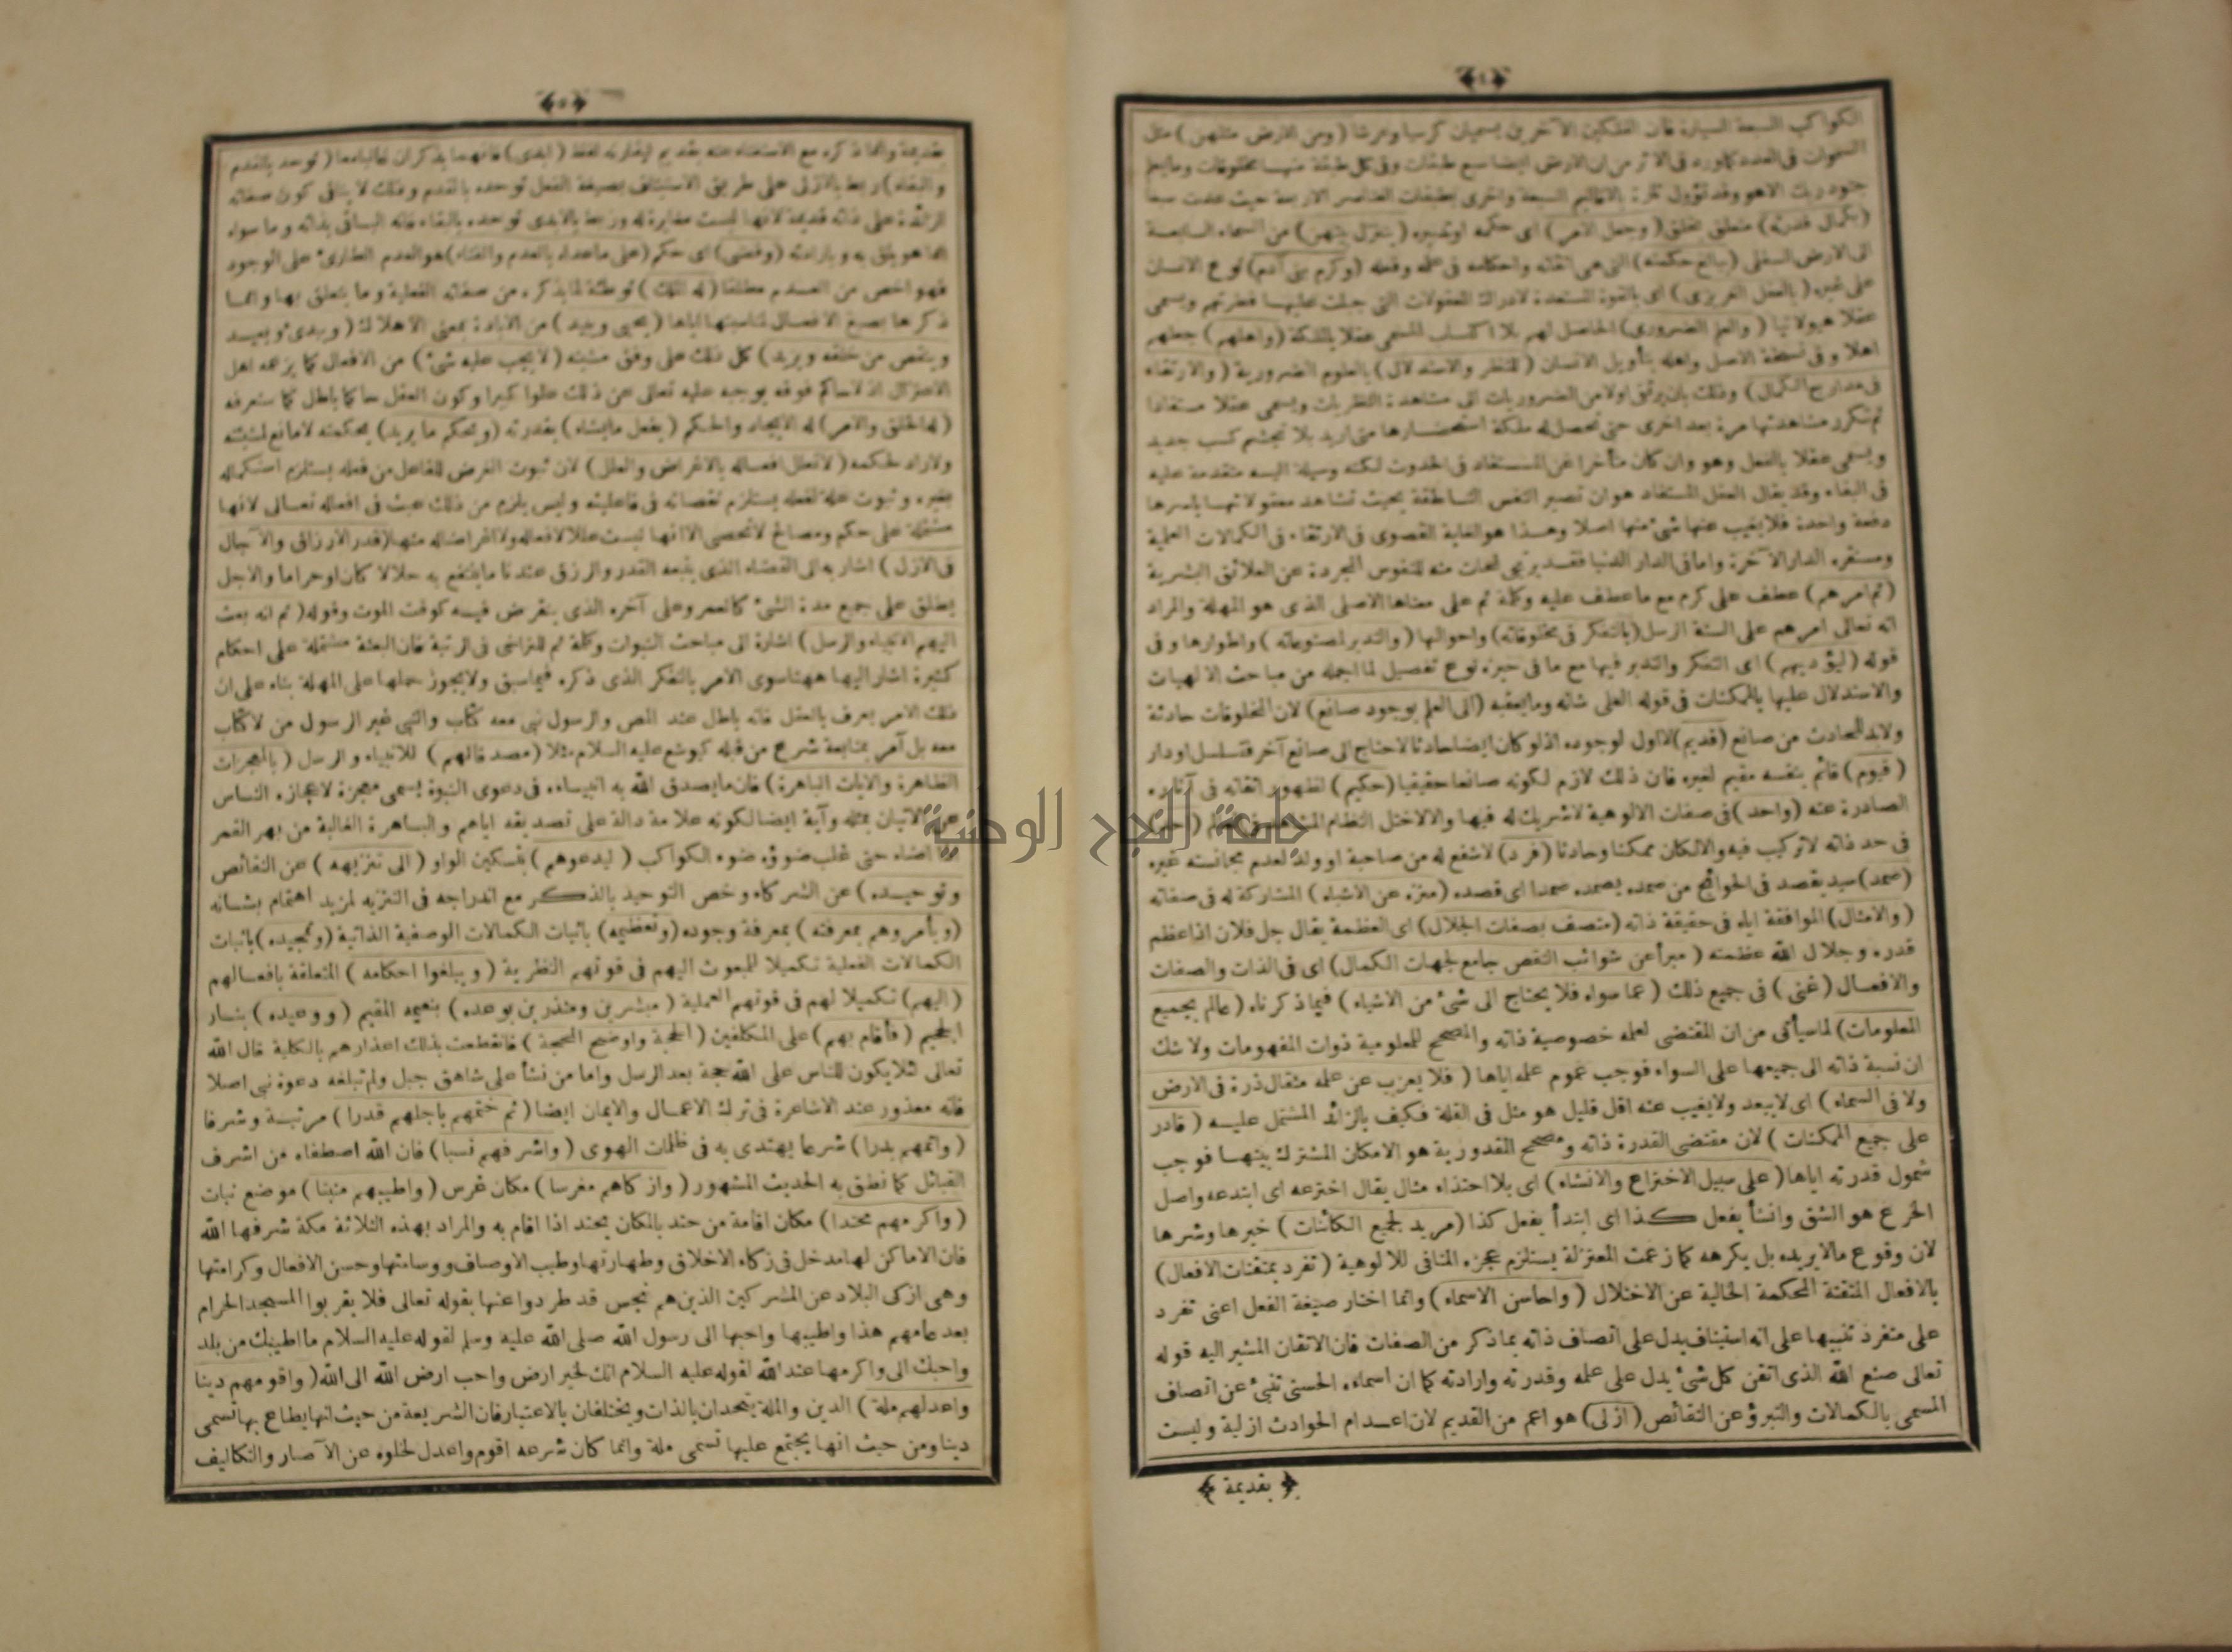 ﴿٤﴾
الكواكب السبعة السيارة فان الفلكين الآخرين يسميان كرسيا وعرشا (ومن الارض مثلهن) مثل
السموات فى العدد كما ورد فى الاثر من ان الارض ايضا سبع طبقات وفى كل طبقة منها مخلوقات وما يعلم
جنود ربك الا هو وقد تؤول تارة بالاقاليم السبعة واخرى بطبقات العناصر الاربعة حيث عدت سبعا
(بكمال قدرته) متعلق بخلق (وجعل الامر) اى حكمه او تدبيره (يتنزل بينهن) من السماء السابعة
الى الارض السفلى (ببالغ حكمته) التى هى اتقانه واحكامه فى علمه وفعله (وكرم بنى آدم) نوع الانسان
على غيره (بالعقل الغريزى) اى بالقوة المستعدة لادراك المعقولات التى جبلت عليها فطرتهم ويسمى
عقلا هيولانيا (والعلم الضرورى) الحاصل لهم بلا اكتساب المسمى عقلا بالملكة (واهلهم) جعلهم
اهلا وفى نسخة الاصل واهله بتأويل الانسان (للنظر والاستدلال) بالعلوم الضرورية (والارتقاء
فى مدارج الكمال) وذلك بان يرتقى اولا من الضروريات الى مشاهدة النظريات ويسمى عقلا مستفادا
ثم تتكرر مشاهدتها مرة بعد اخرى حتى تحصل له ملكة استحضارها متى اريد بلا تجشم كسب جديد
ويسمى عقلا بالفعل وهو وان كان متأخرا عن المستفاد فى الحدوث لكنه وسيلة اليه متقدمة عليه
فى البقاء وقد يقال العقل المستفاد هو ان تصير النفس الناطقة بحيث تشاهد معقولاتها باسرها
دفعة واحدة فلا يغيب عنها شئ منها اصلا وهذا هو الغاية القصوى فى الارتقاء فى الكمالات العلمية
ومستقره الدار الآخرة واما فى الدار الدنيا فقد يرتجى لمحات منه للنفوس المجردة عن العلائق البشرية
(ثم امرهم) عطف على كرم مع ما عطف عليه وكلمة ثم على معناها الاصلى الذى هو المهلة والمراد
انه تعالى امرهم على السنة الرسل (بالتفكر فى مخلوقاته) واحوالها (والتدبر لمصنوعاته) واطوارها وفى
قوله (ليؤديهم) اى التفكر والتدبر فيها مع ما فى حيزه نوع تفصيل لما اجمله من مباحث الالهيات
والاستدلال عليها بالممكنات فى قوله العلى شانه وما يعقبه (الى العلم بوجود صانع) لان المخلوقات حادثة
ولا بد للحادث من صانع (قديم) لا اول لوجوده اذ لو كان ايضا حادثا لاحتاج الى صانع آخر فتسلسل او دار
(قيوم) قائم بنفسه مقيم لغيره فان ذلك لازم لكونه صانعا حقيقيا (حكيم) لظهور اتقانه فى آثاره
الصادرة عنه (واحد) فى صفات الالوهية لا شريك له فيها والا لاختل النظام المشاهد فى العالم (احد)
فى حد ذاته لا تركيب فيه والا لكان ممكنا وحادثا (فرد) لا شفع له من صاحبة او ولد لعدم مجانسته غيره
(صمد) سيد يقصد فى الحوائج من صمده يصمده صمدا اى قصده (منزه عن الاشباه) المشاركة له فى صفاته
(والامثال) الموافقة اياه فى حقيقة ذاته (متصف بصفات الجلال) اى العظمة يقال جل فلان اذا عظم
قدره وجلال الله عظمته (مبرأ عن شوائب النقص جامع لجهات الكمال) اى فى الذات والصفات
والافعال (غنى) فى جميع ذلك (عما سواه فلا يحتاج الى شئ من الاشياء) فيما ذكرناه (عالم بجميع
المعلومات) لما سيأتى من ان المقتضى لعلمه خصوصية ذاته والمصحح للمعلومية ذوات المفهومات ولا شك
ان نسبة ذاته الى جميعها على السواء فوجب عموم علمه اياها (فلا يعزب عن علمه مثقال ذرة فى الارض
ولا فى السماء) اى لا يبعد ولا يغيب عنه اقل قليل هو مثل فى القلة فكيف بالزائد المشتمل عليه (قادر
على جميع الممكنات) لان مقتضى القدرة ذاته ومصحح المقدورية هو الامكان المشترك بينها فوجب
شمول قدرته اياها (على سبيل الاختراع والانشاء) اى بلا احتذاء مثال يقال اخترعه اى ابتدعه واصل
الخرع هو الشق وانشأ يفعل كذا اى ابتدأ يفعل كذا (مريد لجميع الكائنات) خيرها وشرها
لان وقوع ما لا يريده بل يكرهه كما زعمت المعتزلة يستلزم عجزه المنافى للالوهية (تفرد بمتقنات الافعال)
بالافعال المتقنة المحكمة الخالية عن الاختلال (واحاسن الاسماء) وانما اختار صيغة الفعل اعنى تفرد
على متفرد تنبيها على انه استيناف يدل على اتصاف ذاته بما ذكر من الصفات فان الاتقان المشير اليه قوله
تعالى صنع الله الذى اتقن كل شئ يدل على علمه وقدرته وارادته كما ان اسماءه الحسنى تنبئ عن اتصاف
المسمى بالكمالات والتبرؤ عن النقائص (ازلى) هو اعم من القديم لان اعدام الحوادث ازلية وليست
﴿بقديمة﴾
﴿٥﴾
بقديمة وانما ذكره مع الاستغناء عنه بقديم ليقارنه لفظ (ابدى) فانهما يذكران غالبا معا (توحد بالقدم
والبقاء) ربط بالازلى على طريق الاستيناف بصيغة الفعل توحده بالقدم وذلك لا ينافى كون صفاته
الزائدة على ذاته قديمة لانها ليست مغايرة له وربط بالابدى توحده بالبقاء فانه الباقى بذاته وما سواه
انما هو باق به وبارادته (وقضى) اى حكم (على ما عداه بالعدم والفناء) هو العدم الطارئ على الوجود
فهو اخص من العدم مطلقا (له الملك) توطئة لما يذكره من صفاته الفعلية وما يتعلق بها وانما
ذكرها بصيغ الافعال لمناسبتها اياها (يحيى ويبيد) من الابادة بمعنى الاهلاك (ويبدئ ويعيد
وينقص من خلقه ويزيد) كل ذلك على وفق مشيته (لا يجب عليه شئ) من الافعال كما يزعمه اهل
الاعتزال اذ لا حاكم فوقه يوجبه عليه تعالى عن ذلك علوا كبيرا وكون العقل حاكما باطل كما ستعرفه
(له الخلق والامر) له الايجاد والحكم (يفعل ما يشاء) بقدرته (ويحكم ما يريد) بحكمته لا مانع لمشيئته
ولا راد لحكمه (لا تعلل افعاله بالاغراض والعلل) لان ثبوت الغرض للفاعل من فعله يستلزم استكماله
بغيره وثبوت علة لفعله يستلزم نقصانه فى فاعليته وليس يلزم من ذلك عبث فى افعاله تعالى لانها
مشتملة على حكم ومصالح لا تحصى الا انها ليست عللا لافعاله ولا اغراضا له منها (قدر الارزاق والآجال
فى الازل) اشار به الى القضاء الذى يتبعه القدر والرزق عندنا ما ينتفع به حلالا كان او حراما والاجل
يطلق على جميع مدة الشئ كالعمر وعلى آخره الذى ينقرض فيه كوقت الموت وقوله (ثم انه بعث
اليهم الانبياء والرسل) اشارة الى مباحث النبوات وكلمة ثم للتراخى فى الرتبة فان البعثة مشتملة على احكام
كثيرة اشار اليها ههنا سوى الامر بالتفكر الذى ذكره فيما سبق ولا يجوز حملها على المهلة بناء على ان
ذلك الامر يعرف بالعقل فانه باطل عند المص والرسول نبى معه كتاب والنبى غير الرسول من لا كتاب
معه بل آمر بمتابعة شرع من قبله كيوشع عليه السلام مثلا (مصدقا لهم) للانبياء والرسل (بالمعجزات
الظاهرة والايات الباهرة) فان ما يصدق الله به انبياءه فى دعوى النبوة يسمى معجزة لاعجازه الناس
عن الاتيان بمثله وآية ايضا لكونه علامة دالة على تصديقه اياهم والباهرة الغالبة من بهر القمر
اذا اضاء حتى غلب ضوؤه ضوء الكواكب (ليدعوهم) بتسكين الواو (الى تنزيهه) عن النقائص
(وتوحيده) عن الشركاء وخص التوحيد بالذكر مع اندراجه فى التنزيه لمزيد اهتمام بشانه
(ويأمروهم بمعرفته) بمعرفة وجوده (وتعظيمه) باثبات الكمالات الوصفية الذاتية (وتمجيده) باثبات
الكمالات الفعلية تكميلا للمبعوث اليهم فى قوتهم النظرية (ويبلغوا احكامه) المتعلقة بافعالهم
(اليهم) تكميلا لهم فى قوتهم العملية (مبشرين ومنذرين بوعده) بنعيمه المقيم (ووعيده) بنار
الجحيم (فأقام بهم) على المكلفين (الحجة واوضح المحجة) فانقطعت بذلك اعذارهم بالكلية قال الله
تعالى لئلا يكون للناس على الله حجة بعد الرسل واما من نشأ على شاهق جبل ولم تبلغه دعوة نبى اصلا
فانه معذور عند الاشاعرة فى ترك الاعمال والايمان ايضا (ثم ختمهم باجلهم قدرا) مرتبة وشرفا
(واتمهم بدرا) شرعا يهتدى به فى ظلمات الهوى (واشرفهم نسبا) فان الله اصطفاه من اشرف
القبائل كما نطق به الحديث المشهور (وازكاهم مغرسا) مكان غرس (واطيبهم منبتا) موضع نبات
(واكرمهم محتدا) مكان اقامة من حتد بالمكان يحتد اذا اقام به والمراد بهذه الثلاثة مكة شرفها الله
فان الاماكن لها مدخل فى زكاء الاخلاق وطهارتها وطيب الاوصاف ووسامتها وحسن الافعال وكرامتها
وهى ازكى البلاد عن المشركين الذين هم نجس قد طردوا عنها بقوله تعالى فلا يقربوا المسجد الحرام
بعد عامهم هذا واطيبها واحبها الى رسول الله صلى الله عليه وسلم لقوله عليه السلام ما اطيبك من بلد
واحبك الى واكرمها عند الله لقوله عليه السلام انك لخير ارض واحب ارض الله الى الله (واقومهم دينا
واعدلهم ملة) الدين والملة يتحدان بالذات ويختلفان بالاعتبار فان الشريعة من حيث انها يطاع بها تسمى
دينا ومن حيث انها يجتمع عليها تسمى ملة وانما كان شرعه اقوم واعدل لخلوه عن الآصار والتكاليف
جامعة النجاح الوطنية